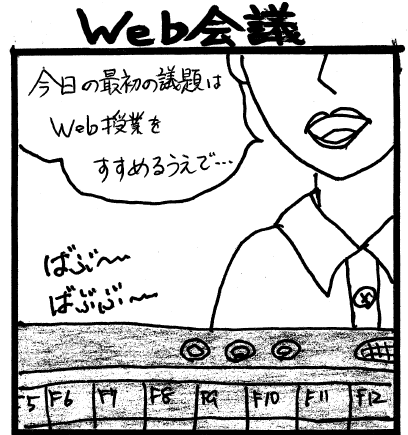 Web会議
今日の最初の議題は
Web授業を
すすめるうえで…
ばぶ〜
ばぶぶ〜
5 F6 F7 F8 F9 F10 F11 F12